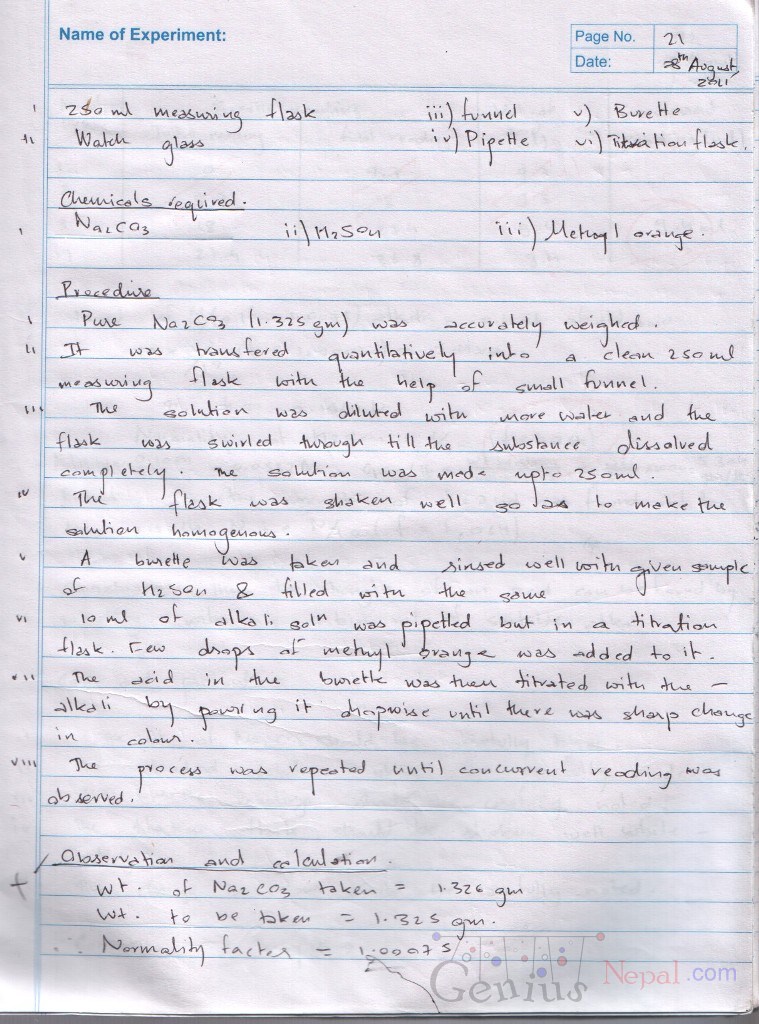 Name of Experiment:
Page No. 21
Date: 28th August, 2011
i 250 ml measuring flask iii) funnel v) Burette
ii Watch glass iv) Pipette vi) Titration flask.
Chemicals required.
i Na2CO3 ii) H2SO4 iii) Methyl orange.
Procedure
i Pure Na2CO3 (1.325 gm) was accurately weighed.
ii It was transfered quantitatively into a clean 250 ml
measuring flask with the help of small funnel.
iii The solution was diluted with more water and the
flask was swirled through till the substance dissolved
completely. The solution was made upto 250ml.
iv The flask was shaken well so as to make the
solution homogenous.
v A burette was taken and rinsed well with given sample
of H2SO4 & filled with the same
vi 10 ml of alkali soln was pipetted but in a titration
flask. Few drops of methyl orange was added to it.
vii The acid in the burette was then titrated with the –
alkali by pouring it dropwise until there was sharp change
in colour.
viii The process was repeated until concurrent reading was
observed.
Observation and calculation.
Wt. of Na2CO3 taken = 1.326 gm
Wt. to be taken = 1.325 gm.
∴ Normality factor = 1.00075
Genius Nepal.com